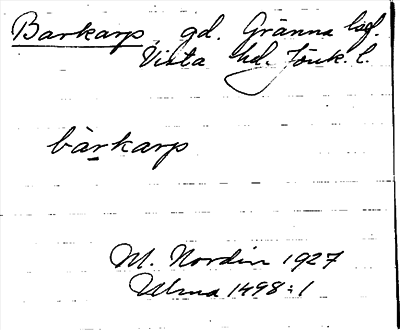 Barkarp, gd. Gränna lsf.
Vista hd. Jönk. l.
bàrkarp
M. Nordin 1927
Ulma 1498:1